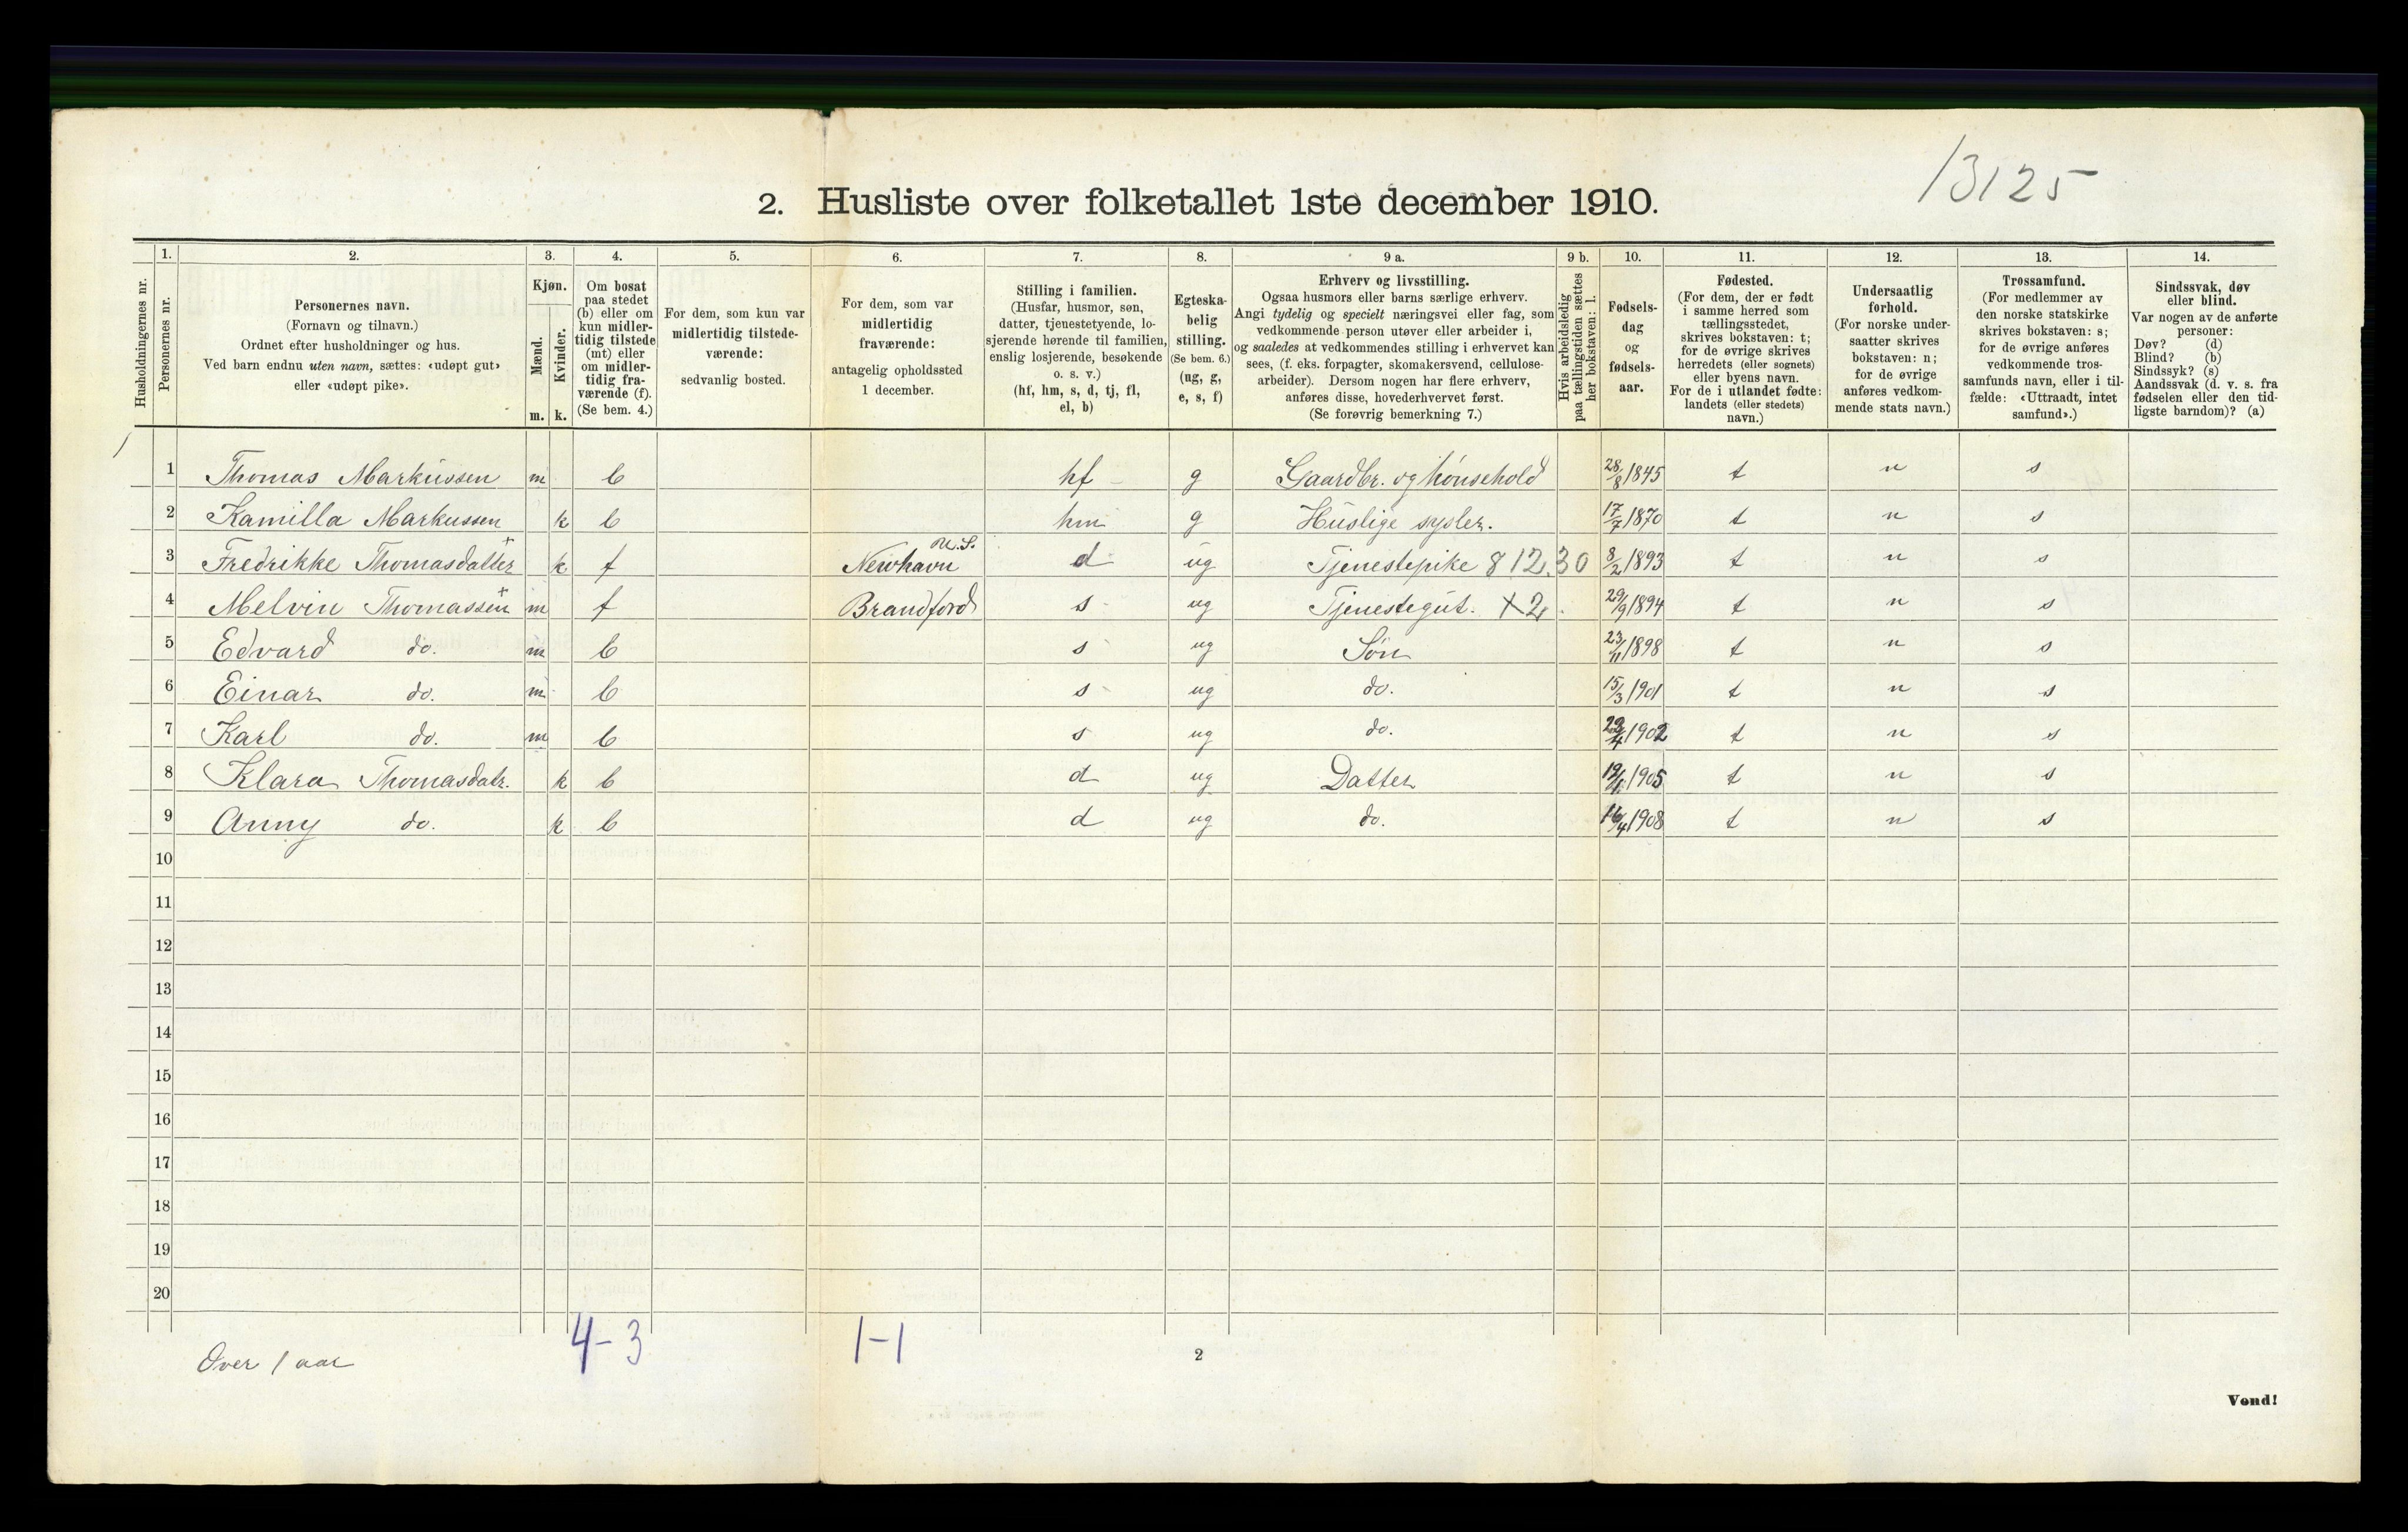 13125
2. Husliste over folketallet 1ste december 1910.
Husholdningernes nr.
1. Personernes nr.
2. Personernes navn.
(Fornavn og tilnavn.)
Ordnet efter husholdninger og hus.
Ved barn endnu uten navn, sættes: «udøpt gut»
eller «udøpt pike».
3. Kjøn.
Mænd. m.
Kvinder. k.
4. Om bosat
paa stedet
(b) eller om
kun midler-
tidig tilstede
(mt) eller
om midler-
tidig fra-
værende (f).
(Se bem. 4.)
5. For dem, som kun var
midlertidig tilstede-
værende:
sedvanlig bosted.
6. For dem, som var
midlertidig
fraværende:
antagelig opholdssted
1 december.
7. Stilling i familien.
(Husfar, husmor, søn,
datter, tjenestetyende, lo-
sjerende hørende til familien,
enslig losjerende, besøkende
o. s. v.)
(hf, hm, s, d, tj, fl,
el, b)
8. Egteska-
belig
stilling.
(Se bem. 6.)
(ug, g,
e, s, f)
9 a. Erhverv og livsstilling.
Ogsaa husmors eller barns særlige erhverv.
Angi tydelig og specielt næringsvei eller fag, som
vedkommende person utøver eller arbeider i,
og saaledes at vedkommendes stilling i erhvervet kan
sees, (f. eks. forpagter, skomakersvend, cellulose-
arbeider). Dersom nogen har flere erhverv,
anføres disse, hovederhvervet først.
(Se forøvrig bemerkning 7.)
9 b. Hvis arbeidsledig
paa tællingstiden sættes
her bokstaven: l.
10. Fødsels-
dag
og
fødsels-
aar.
11. Fødested.
(For dem, der er født
i samme herred som
tællingsstedet,
skrives bokstaven: t;
for de øvrige skrives
herredets (eller sognets)
eller byens navn.
For de i utlandet fødte:
landets (eller stedets)
navn.)
12. Undersaatlig
forhold.
(For norske under-
saatter skrives
bokstaven: n;
for de øvrige
anføres vedkom-
mende stats navn.)
13. Trossamfund.
(For medlemmer av
den norske statskirke
skrives bokstaven: s;
for de øvrige anføres
vedkommende tros-
samfunds navn, eller i til-
fælde: «Uttraadt, intet
samfund».)
14. Sindssvak, døv
eller blind.
Var nogen av de anførte
personer:
Døv? (d)
Blind? (b)
Sindssyk? (s)
Aandssvak (d. v. s. fra
fødselen eller den tid-
ligste barndom)? (a)
1 1 Thomas Markussen m b hf g Gaardbr. og hønsehold 28/8 1845 t n s
2 Kamilla Markussen k b hm g Huslige sysler. 17/7 1870 t n s
3 Fredrikke Thomasdatter + k f Newhavn U.S. d ug Tjenestepike 812.30 8/2 1893 t n s
4 Melvin Thomassen + m f Brandford s ug Tjenestegut. x2. 29/9 1894 t n s
5 Edvard do. m b s ug Søn 23/11 1898 t n s
6 Einar do. m b s ug do. 15/3 1901 t n s
7 Karl do. m b s ug do. 1902 t n s
8 Klara Thomasdatr. k b d ug Datter 1905 t n s
9 Anny do. k b d ug do. 16/4 1908 t n s
10
11
12
13
14
15
16
17
18
19
20
4-3 1-1
Over 1 aar
2
Vend!